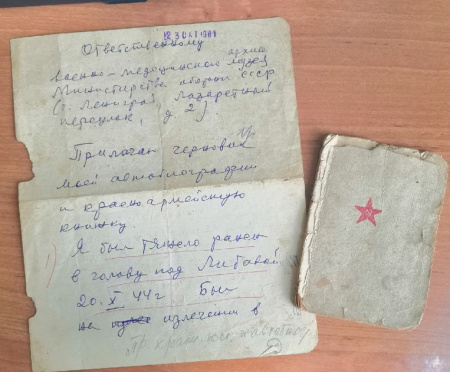 30 XI 1981
Ответственному
архив
военно-медицинском музее
Министерстве обороны СССР
(г. Ленинград, Лазаретный
переулок, д. 2).
Прилагаю черновик
моей автобиографии
и красноармейскую
книжку
Я был тяжело ранен
в голову под Либавой
20. X 44 г Был
на излечении в